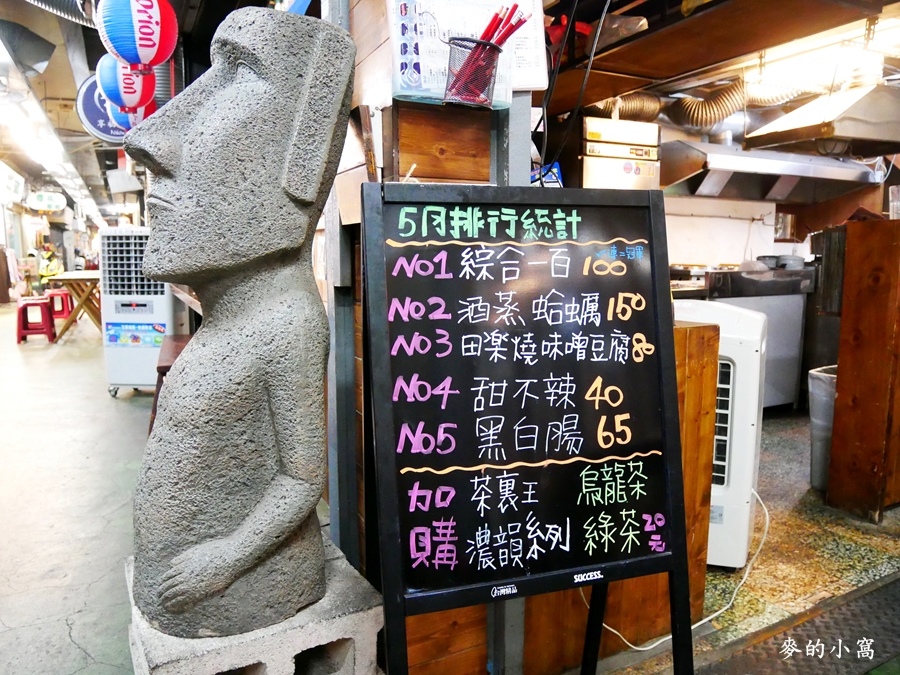 orion
5月排行統計
NO1 綜合一百 100
NO2 酒蒸蛤蠣 150
NO3 田楽燒味噌豆腐 80
NO4 甜不辣 40
NO5 黑白腸 65
加購
茶裏王 烏龍茶
濃韻系列 綠茶 20元
SUCCESS.
麥的小窩